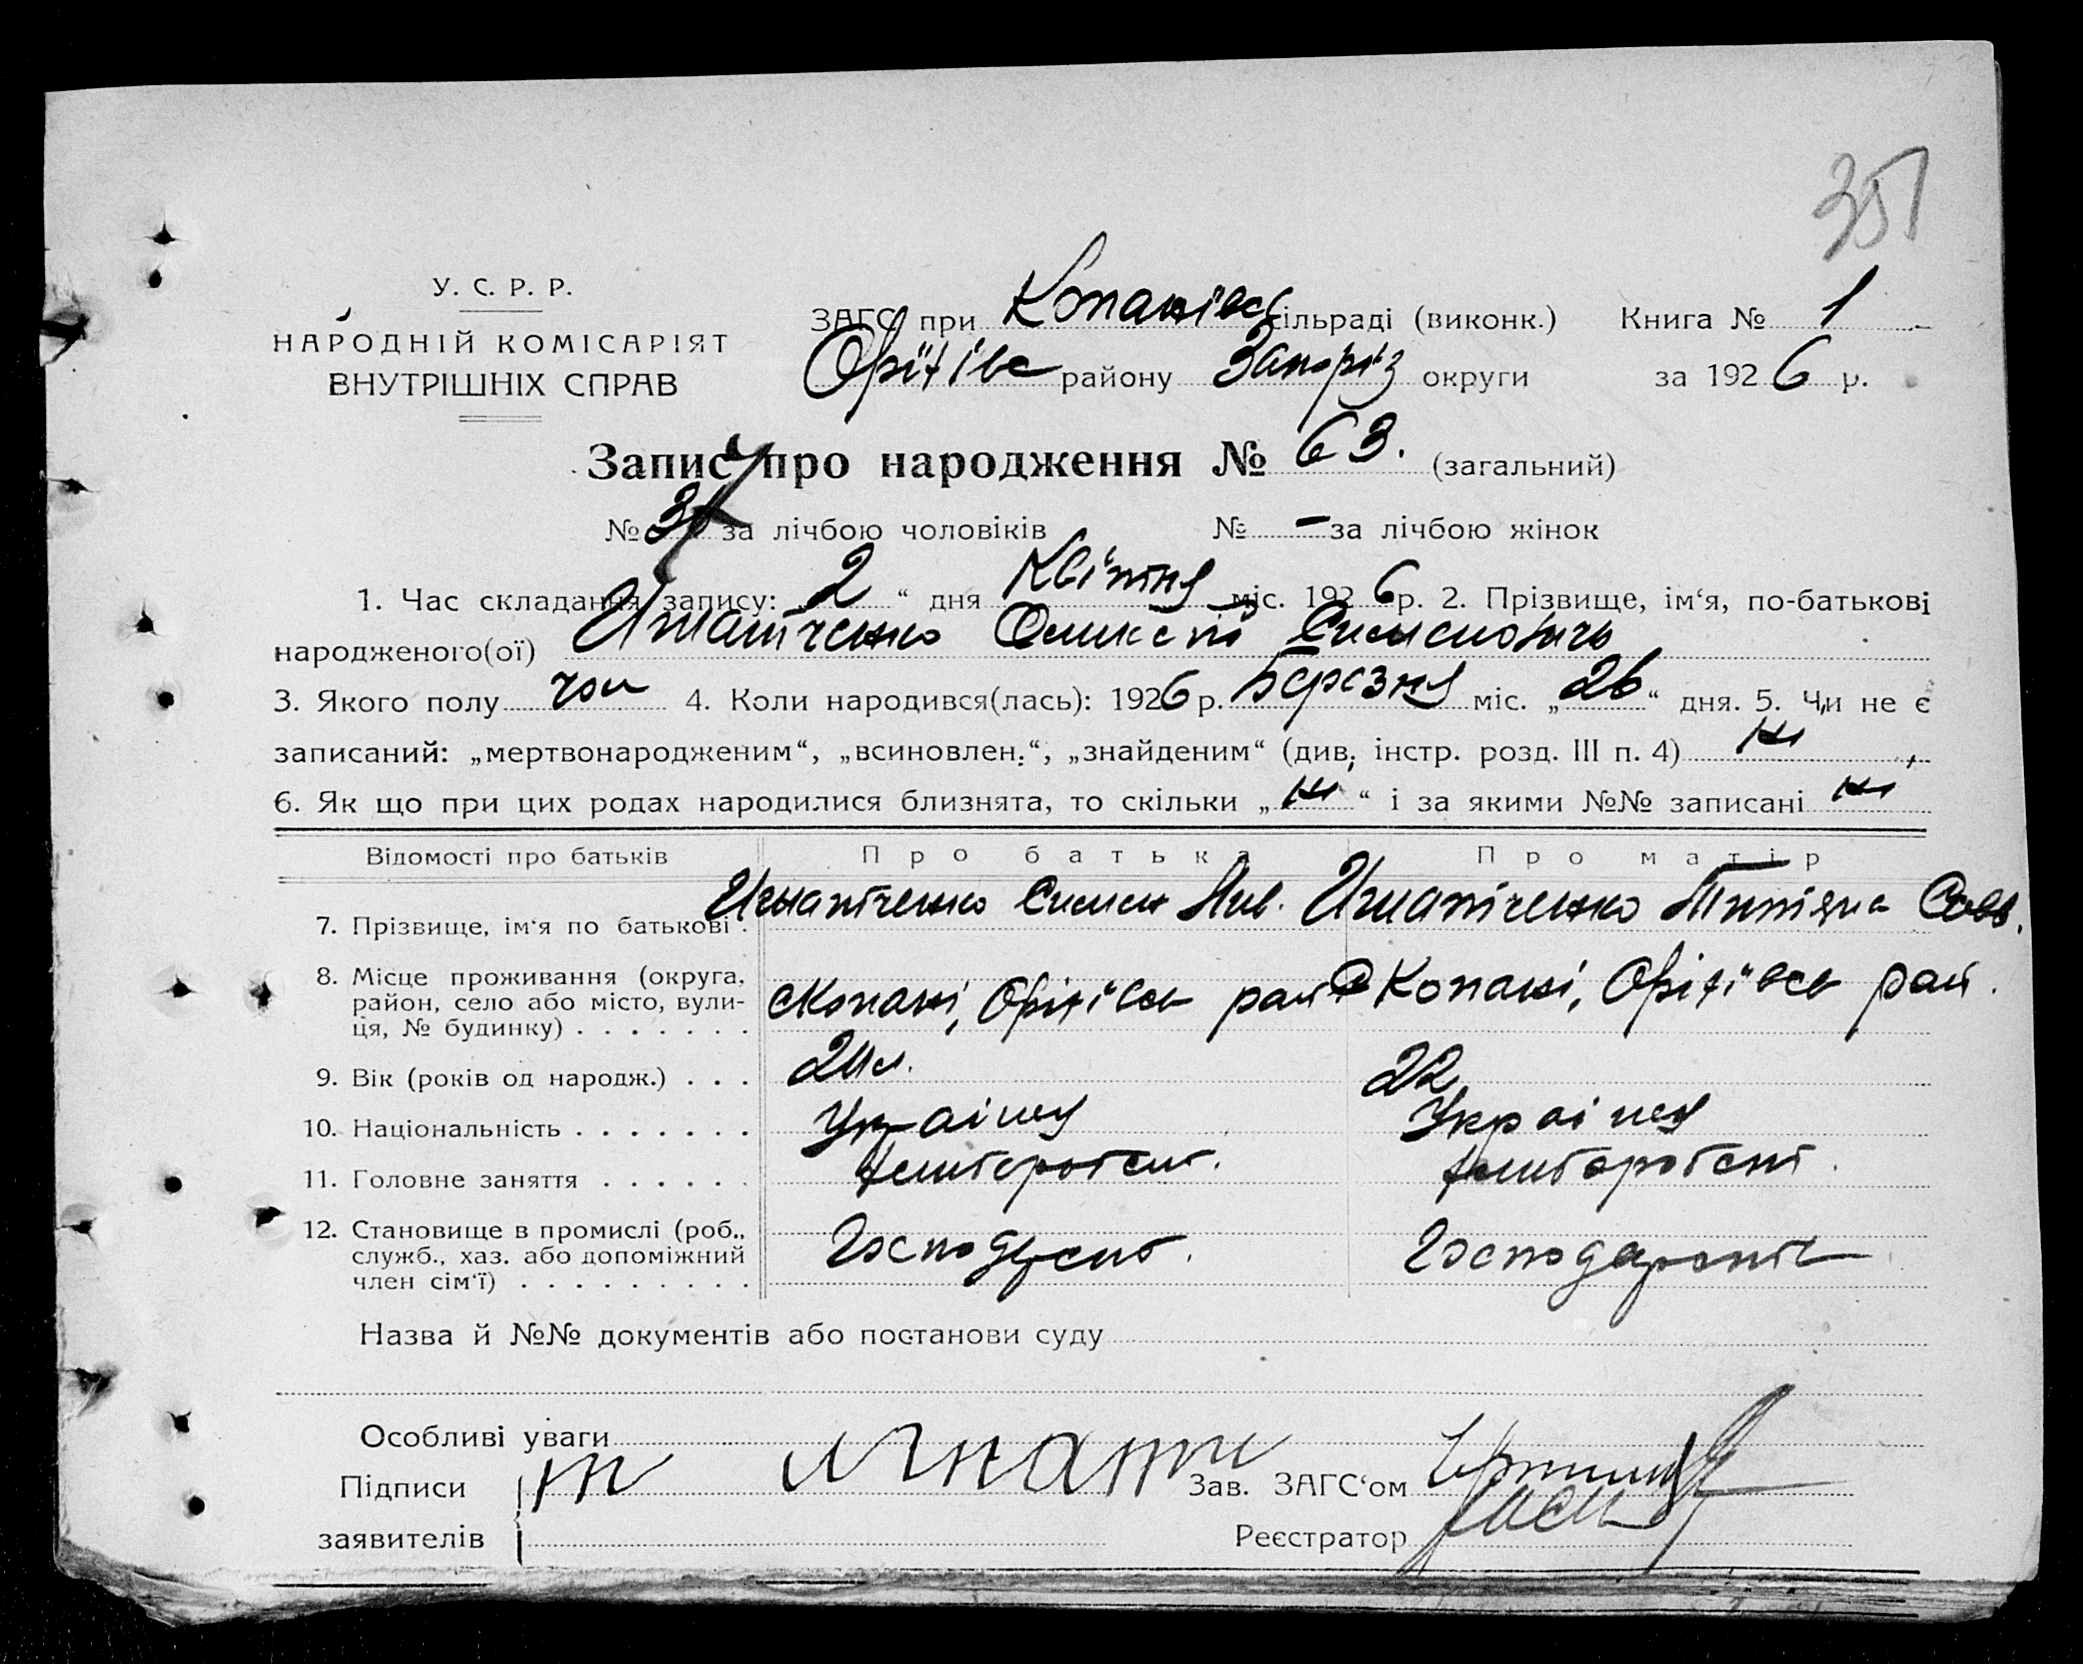 351
У. С. Р. Р.
НАРОДНІЙ КОМІСАРІЯТ
ВНУТРІШНІХ СПРАВ
ЗАГС при Копанівс сільраді (виконк.) Книга № 1
Оріхівс району Запоріз округи за 1926 р.
Запис про народження № 63. (загальний)
№ за лічбою чоловіків № – за лічбою жінок
1. Час складання запису: „2“ дня Квітня міс. 1926 р. 2. Прізвище, ім‘я, по-батькові
народженого(ої) Игнатченко Олексій Сименович
3. Якого полу чол 4. Коли народився(лась): 1926 р. Березня міс. „26“ дня. 5. Чи не є
записаний: „мертвонародженим“, „всиновлен.“, „знайденим“ (див. інстр. розд. III п. 4) ні
6. Як що при цих родах народилися близнята, то скільки „ні“ і за якими №№ записані ні
Відомості про батьків Про батька Про матір
7. Прізвище, ім‘я по батькові. Игнатченко Симен Игнатченко Титяна Савв.
8. Місце проживання (округа,
район, село або місто, вули-
ця, № будинку) . . . . . . . с Копані, Оріхівсь рай с Копані, Оріхівсь рай.
9. Вік (років од народж.) . . . 22
10. Національність . . . . . . . Україней Україней
11. Головне заняття . . . . . . хлібороб хлібороб
12. Становище в промислі (роб.,
служб., хаз. або допоміжний
член сім‘ї) . . . . . . . . . Господар
Назва й №№ документів або постанови суду
Особливі уваги
Підписи Игнат Зав. ЗАГС‘ом
заявителів Реєстратор